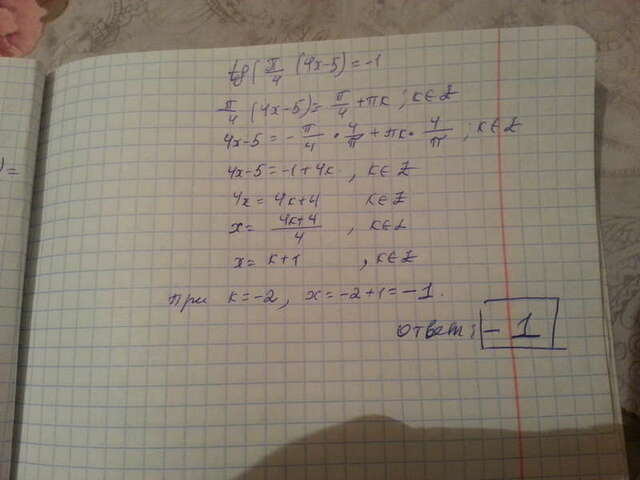 tg(π/4 (4x-5)=-1
π/4 (4x-5)=π/4+πk ; k∈Z
4x-5=-π/4·4/π+πk·4/π ; k∈Z
4x-5=-1+4k, k∈Z
4x=4k+4 k∈Z
x=(4k+4)/4, k∈Z
x=k+1, k∈Z
при k=-2, x=-2+1=-1.
ответ: -1
)=